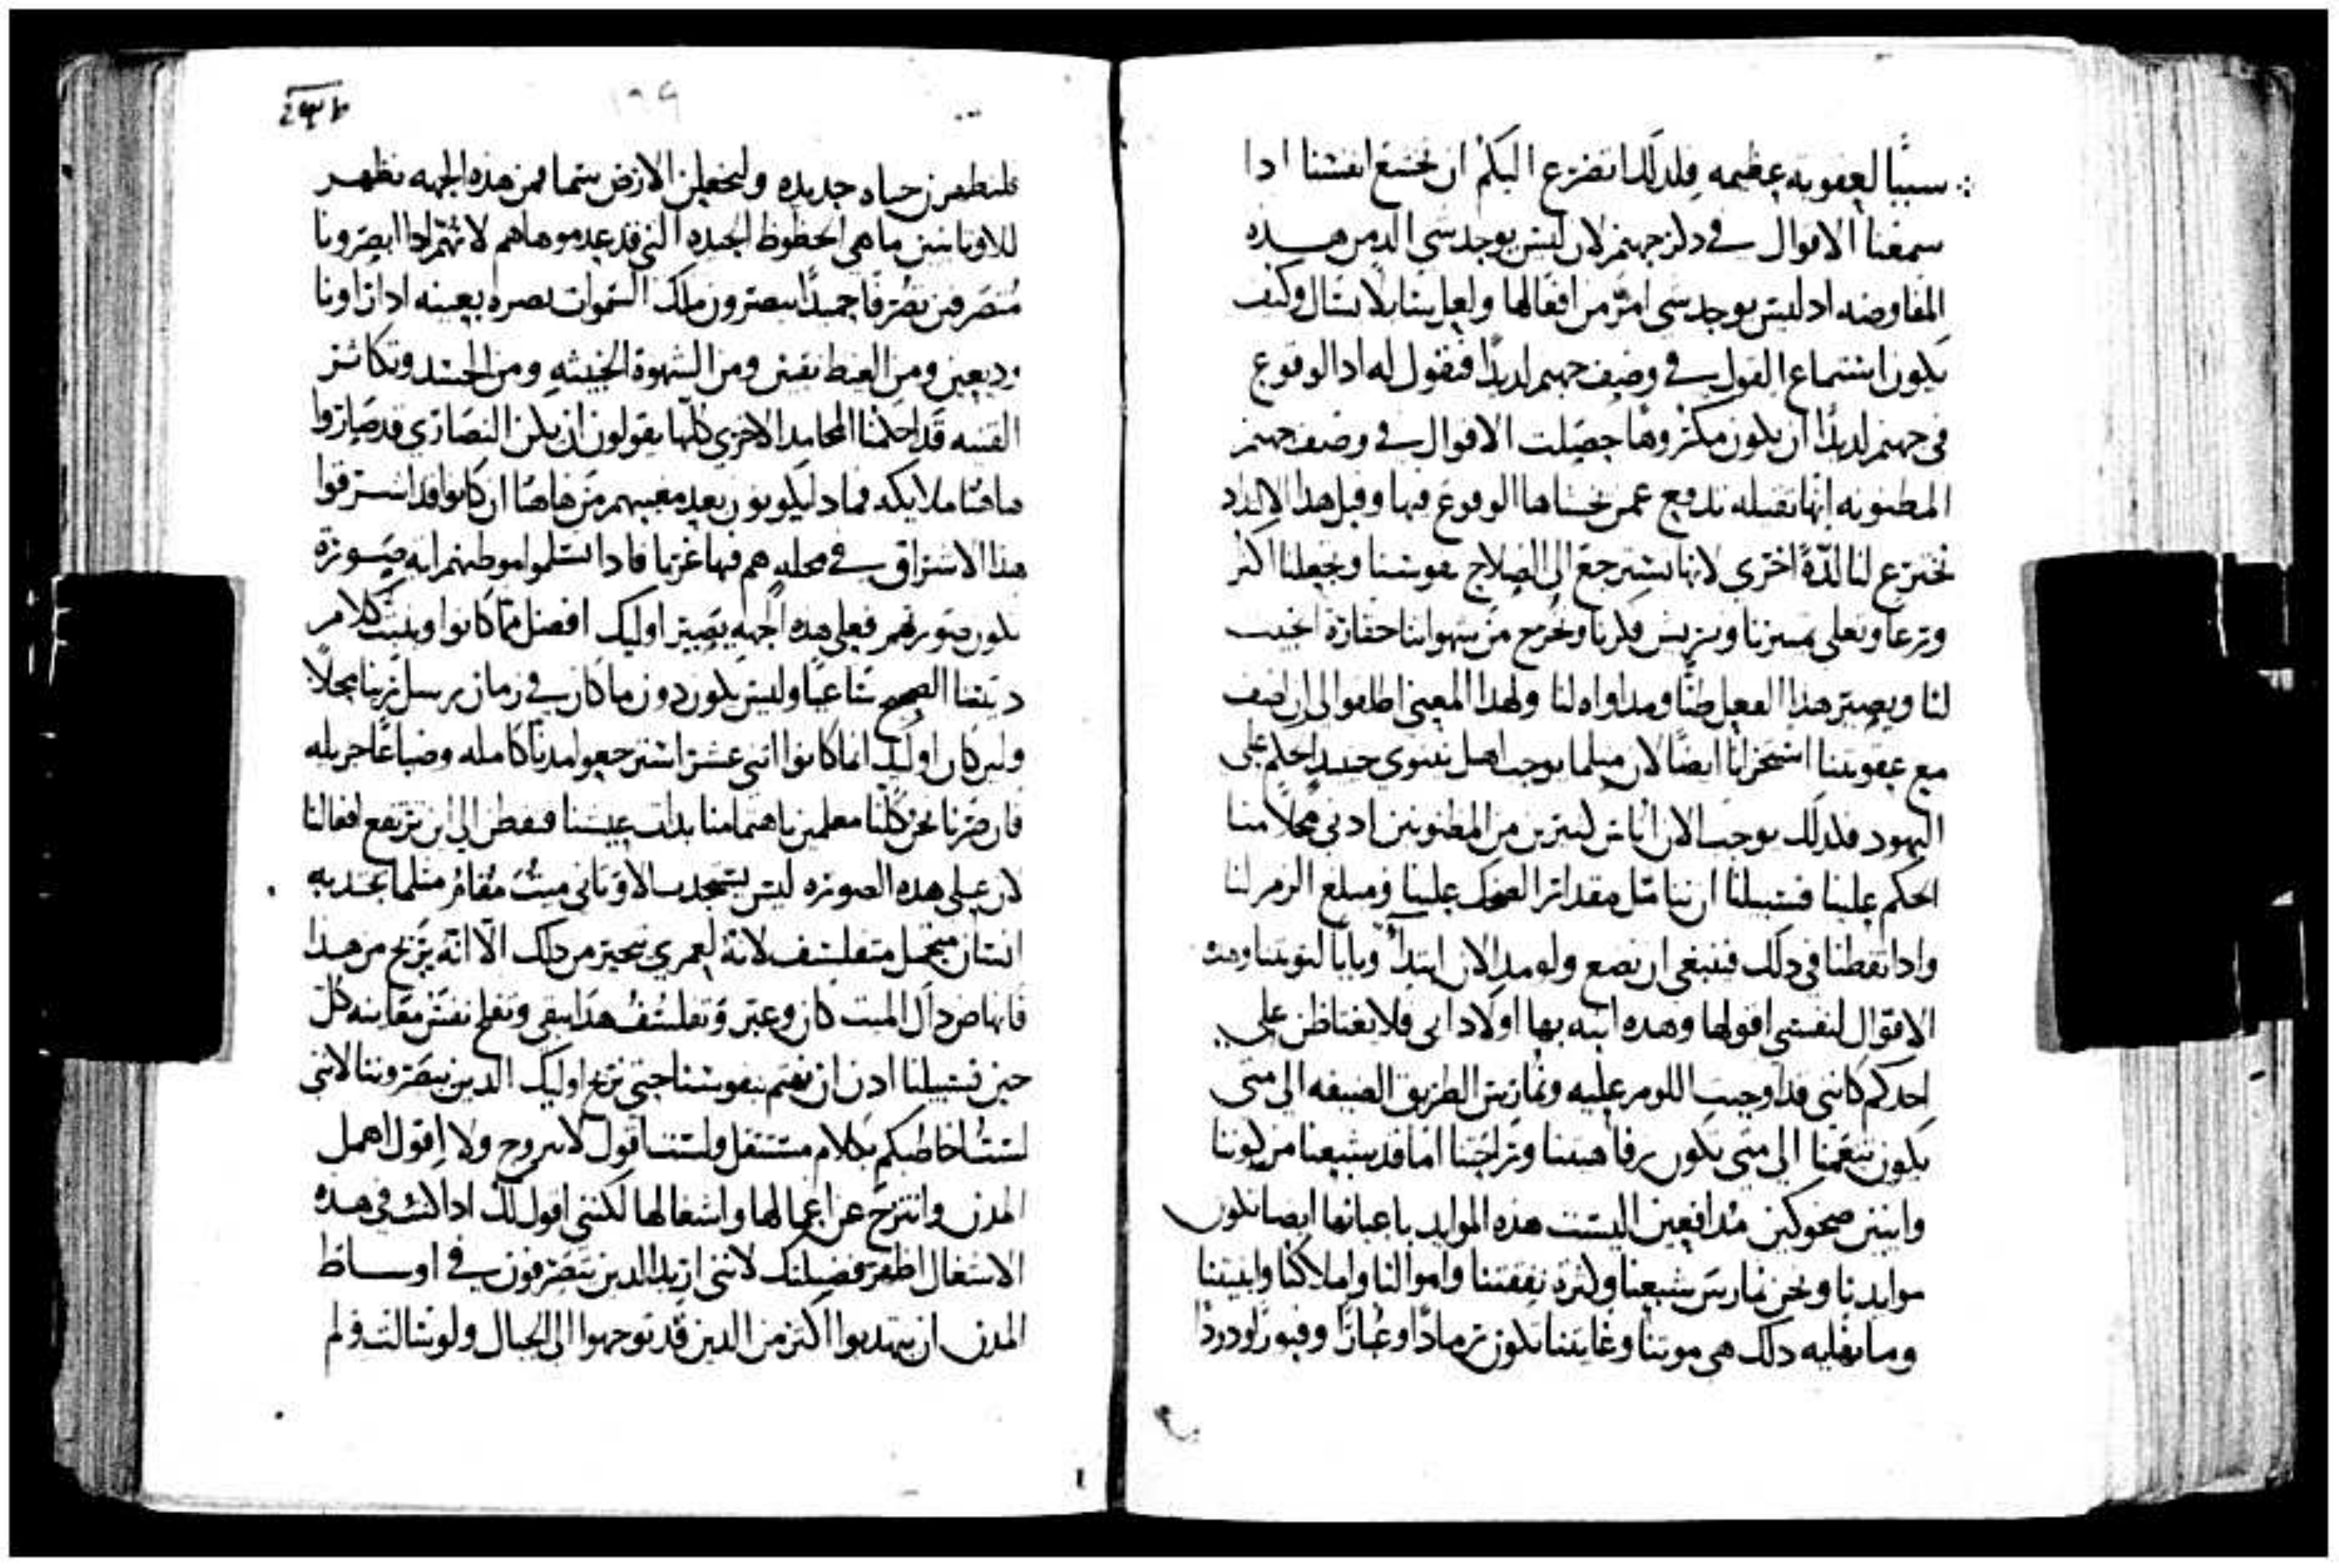 سببًا لعقوبه عظيمه فلذلك اتضرع اليكم ان نخشع انفسنا اذا
سمعنا الاقوال في ذكر جهنم لان ليس يوجد شي الذ من هذه
المفاوضه اد ليس يوجد شي امرّ من افعالها ولعل يتنا بلا يتسال وكيف
يكون استماع القول في وصف جهنم لديدًا فنقول له اد الوقوع
في جهنم لديدًا ان يكون مكروهًا حصلت الاقوال في وصف جهنم
المظنونه انها ثقيله تدفع عمن يخشاها الوقوع فيها وقبل هدا الالتداد
تخترع لنا لدّةً اخرى لانها تسترجع الى الصلاح نفوسنا وتجعلنا اكثر
ورعا وتعلي تمييزنا وتريش فكرنا وتخرج من شهواتنا حصاره الخبيث
لنا ويصير هدا الفعل طبًّا ومداواه لنا ولهدا المعنى اطلقوا لي ان اصف
مع عقوبتنا استخزانا ايضًا لان مثلما يوجب اهل نينوى حينيد الحكم على
اليهود فلدلك يوجب الان اناس كثيرين من المظنونين ادنى محلا منا
الحكم علينا فسبيلنا ان نتامّل مقدار الضحك علينا ومبلغ الزمر لنا
وادا تفطنا في دلك فينبغي ان نضع ولو مد الان ابتداً وبابًا لتوبتنا وهده
الاقوال لنفسي اقولها وهده انبه بها اولاد ابي فلا يغتاظن علي
احدكم كانني قد اوجبت اللوم عليه ونمارس الطريق الضيقه الى متى
يكون تنعمنا الى متى تكون رفاهيتنا وتراخينا اما قد يشبعنا من كوننا
وانيين ضحوكين مدافعين اليست هده الموايد باعيانها ايضا تكون
موايدنا ونحن نمارس شبعنا وكثرة نفقتنا واموالنا واملاكنا وابنيتنا
وما نقلبه دلك هي موتنا وغايتنا تكون ترمادًا وغبارًا وقبورًا ودردًا
١٨٩
فلنظهرن حياه جديده ولنجعلن الارض سما فمن هذه الجهه نظهر
للاونانيين ما هي الحظوظ الجيده التي قد عدموها هم لانهم ادا ابصرونا
متصرفين تصرفًا جميلًا يبصرون ملك السموات بصره بعينه ادا راونا
وديعين ومن الغيظ نقيين ومن الشهوة الخبيثه ومن الحسد وتكاثر
القنيه قد احكمنا المحامد الاخرى كلها يقولون ان يكن النصارى قد صاروا
هاهنا ملايكه فماد ليكونون بعد مغيبهم من هاهنا ان كانوا قد اشرقوا
هدا الاشراق في محله هم فيها غربا فادا تسلموا موطنهم ايه صورة
تكون صورتهم فعلى هده الجهه يصير اوليك افضل مما كانوا ويثبت كلام
ديننا الصحيح شاعيًا وليس يكون دون ما كان في زمان رسل ربنا محلا
ولين كان اوليك انما كانوا اثني عشر استرجعوا مدنًا كامله وضياعًا جزيله
فان صرنا نحن كلنا معلمين باهتمامنا بداب عيشنا فتفطن الى اين ترتفع افعالنا
لان على هده الصوره ليس يستجدب الاوناني ميت مقام مثلما يجذبه
انسان متجمل متفلسف لانه لعمري يتحير من دلك الا انه يربح من هدا
فانهاض دال الميت كان وعبر وتفلسف هدا يبقى وتفلح نفس مقابله كل
حين فسبيلنا ادن ان نهتم بنفوسنا حتى نربح اوليك الدين يبصروننا لانني
لست اخاطبكم بكلام مستثقل ولست اقول لا تتزوج ولا اقول اهمل
المدن وانتزح عن اعمالها واشغالها لكنني اقول لك ادا كنت في هده
الاشغال اظهر فضيلتك لانني اريد الدين يتصرفون في اوساط
المدن ان يتهدبوا اكثر من الدين قد توجهوا الى الجبال ولو سالت ولم